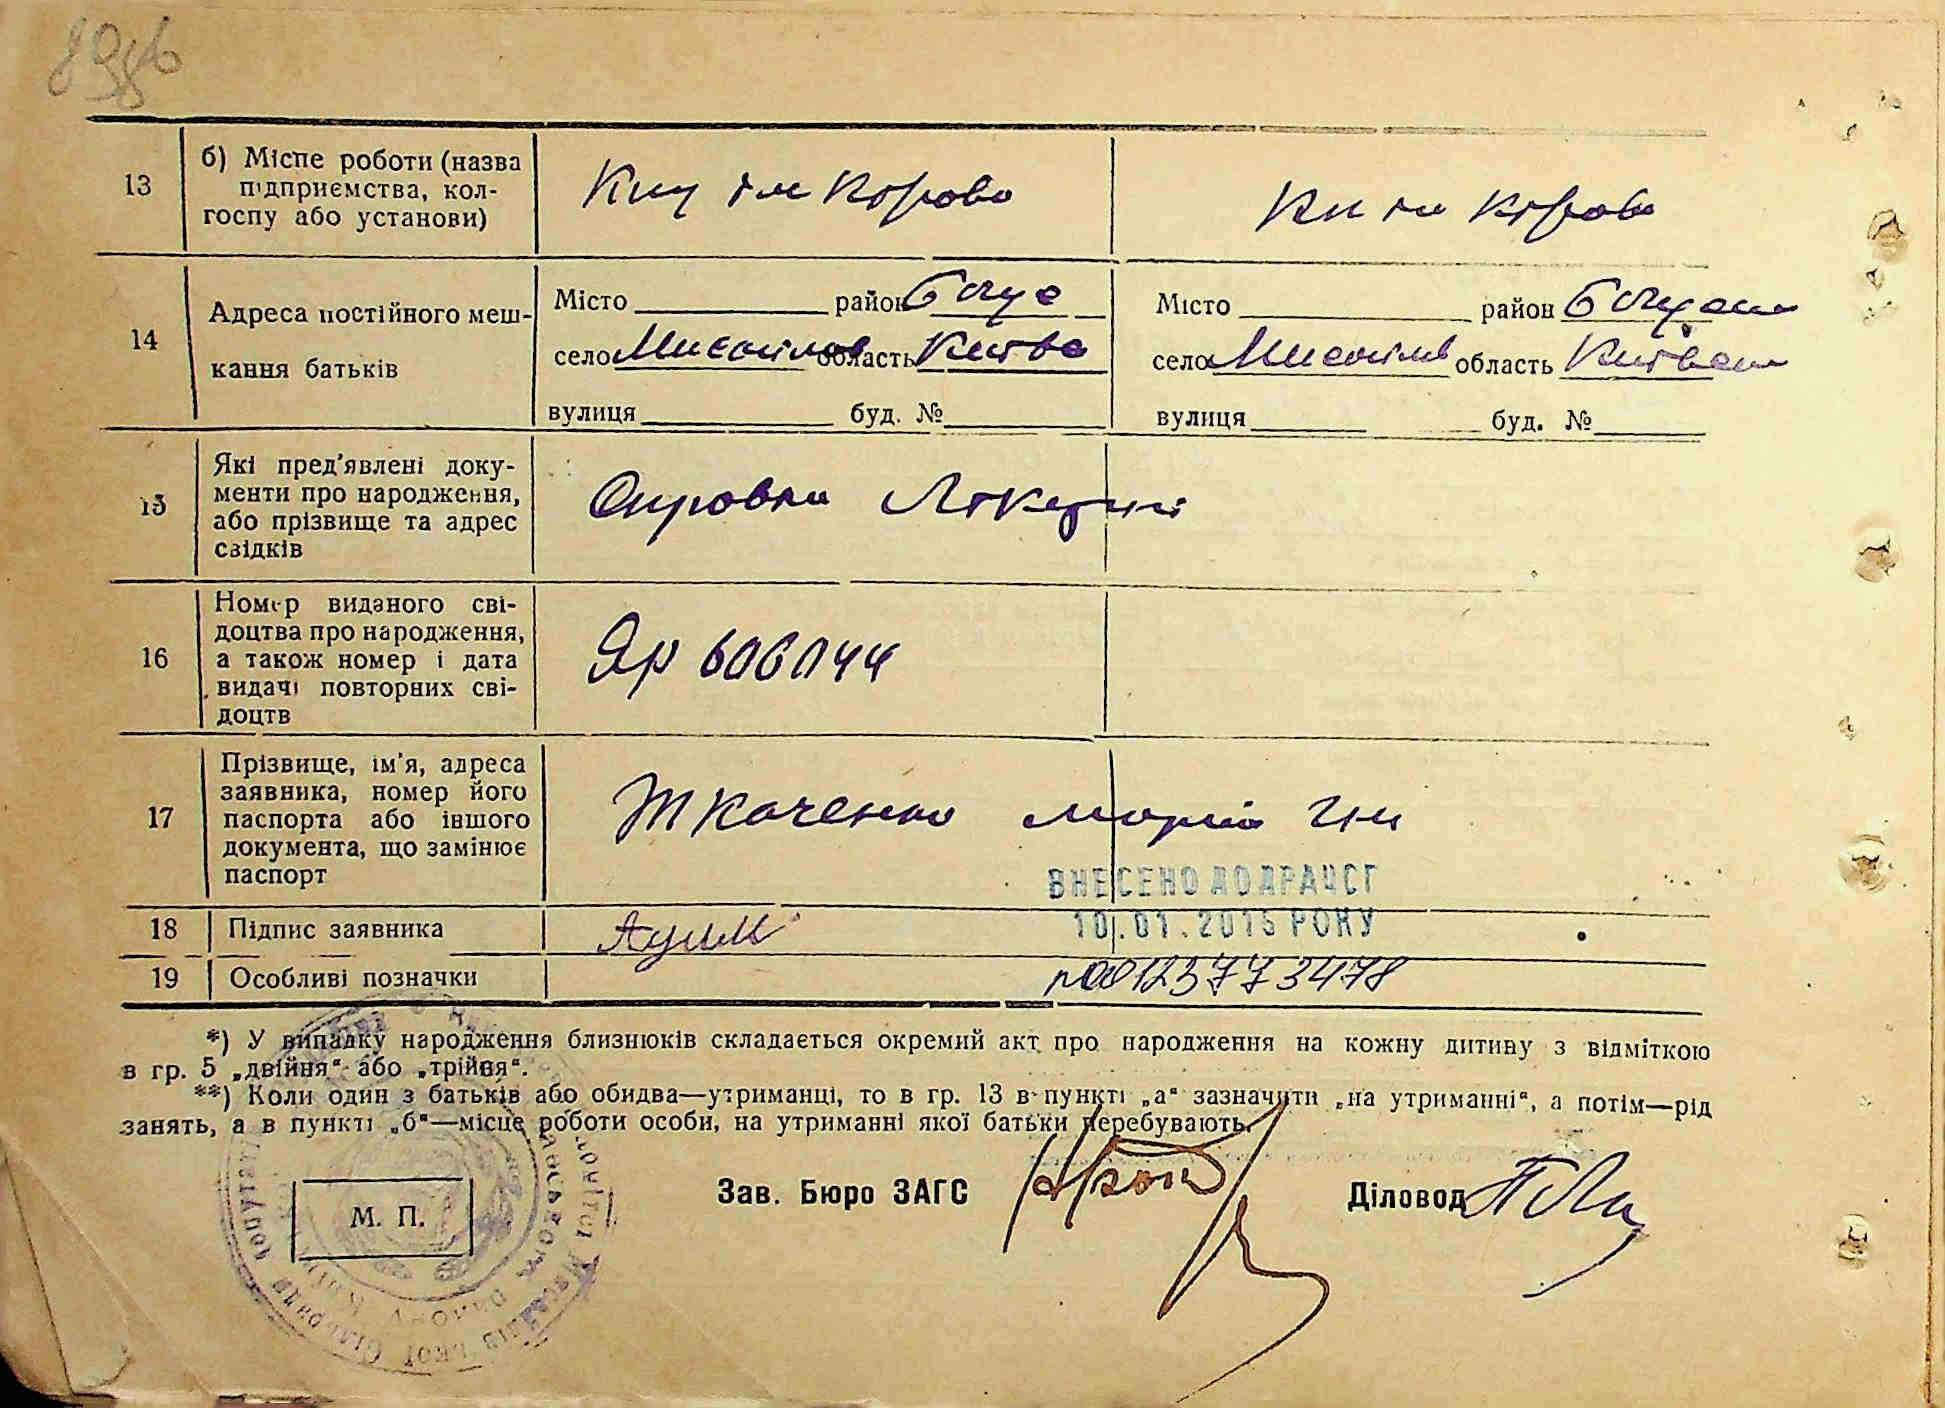 13
б) Місце роботи (назва
підприємства, кол-
госпу або установи)
14
Адреса постійного меш-
кання батьків
Місто район Богус
село Мисайлів область Київсь
вулиця буд. №
Місто район Богуслав
село Мисайлів область Київськ
вулиця буд. №
15
Які пред'явлені доку-
менти про народження,
або прізвище та адрес
свідків
16
Номер виданого сві-
доцтва про народження,
а також номер і дата
видачі повторних сві-
доцтв
Яр 606044
17
Прізвище, ім'я, адреса
заявника, номер його
паспорта або іншого
документа, що замінює
паспорт
Ткаченко Марія
ВНЕСЕНО ДО ДРАЦСГ
18 Підпис заявника
10.01.2015 РОКУ
19 Особливі позначки
00123773478
*) У випадку народження близнюків складається окремий акт про народження на кожну дитину з відміткою
в гр. 5 „двійня" або „трійня".
**) Коли один з батьків або обидва—утриманці, то в гр. 13 в пункті „а" зазначити „на утриманні", а потім—рід
занять, а в пункті „б"—місце роботи особи, на утриманні якої батьки перебувають.
Зав. Бюро ЗАГС
Діловод
М. П.